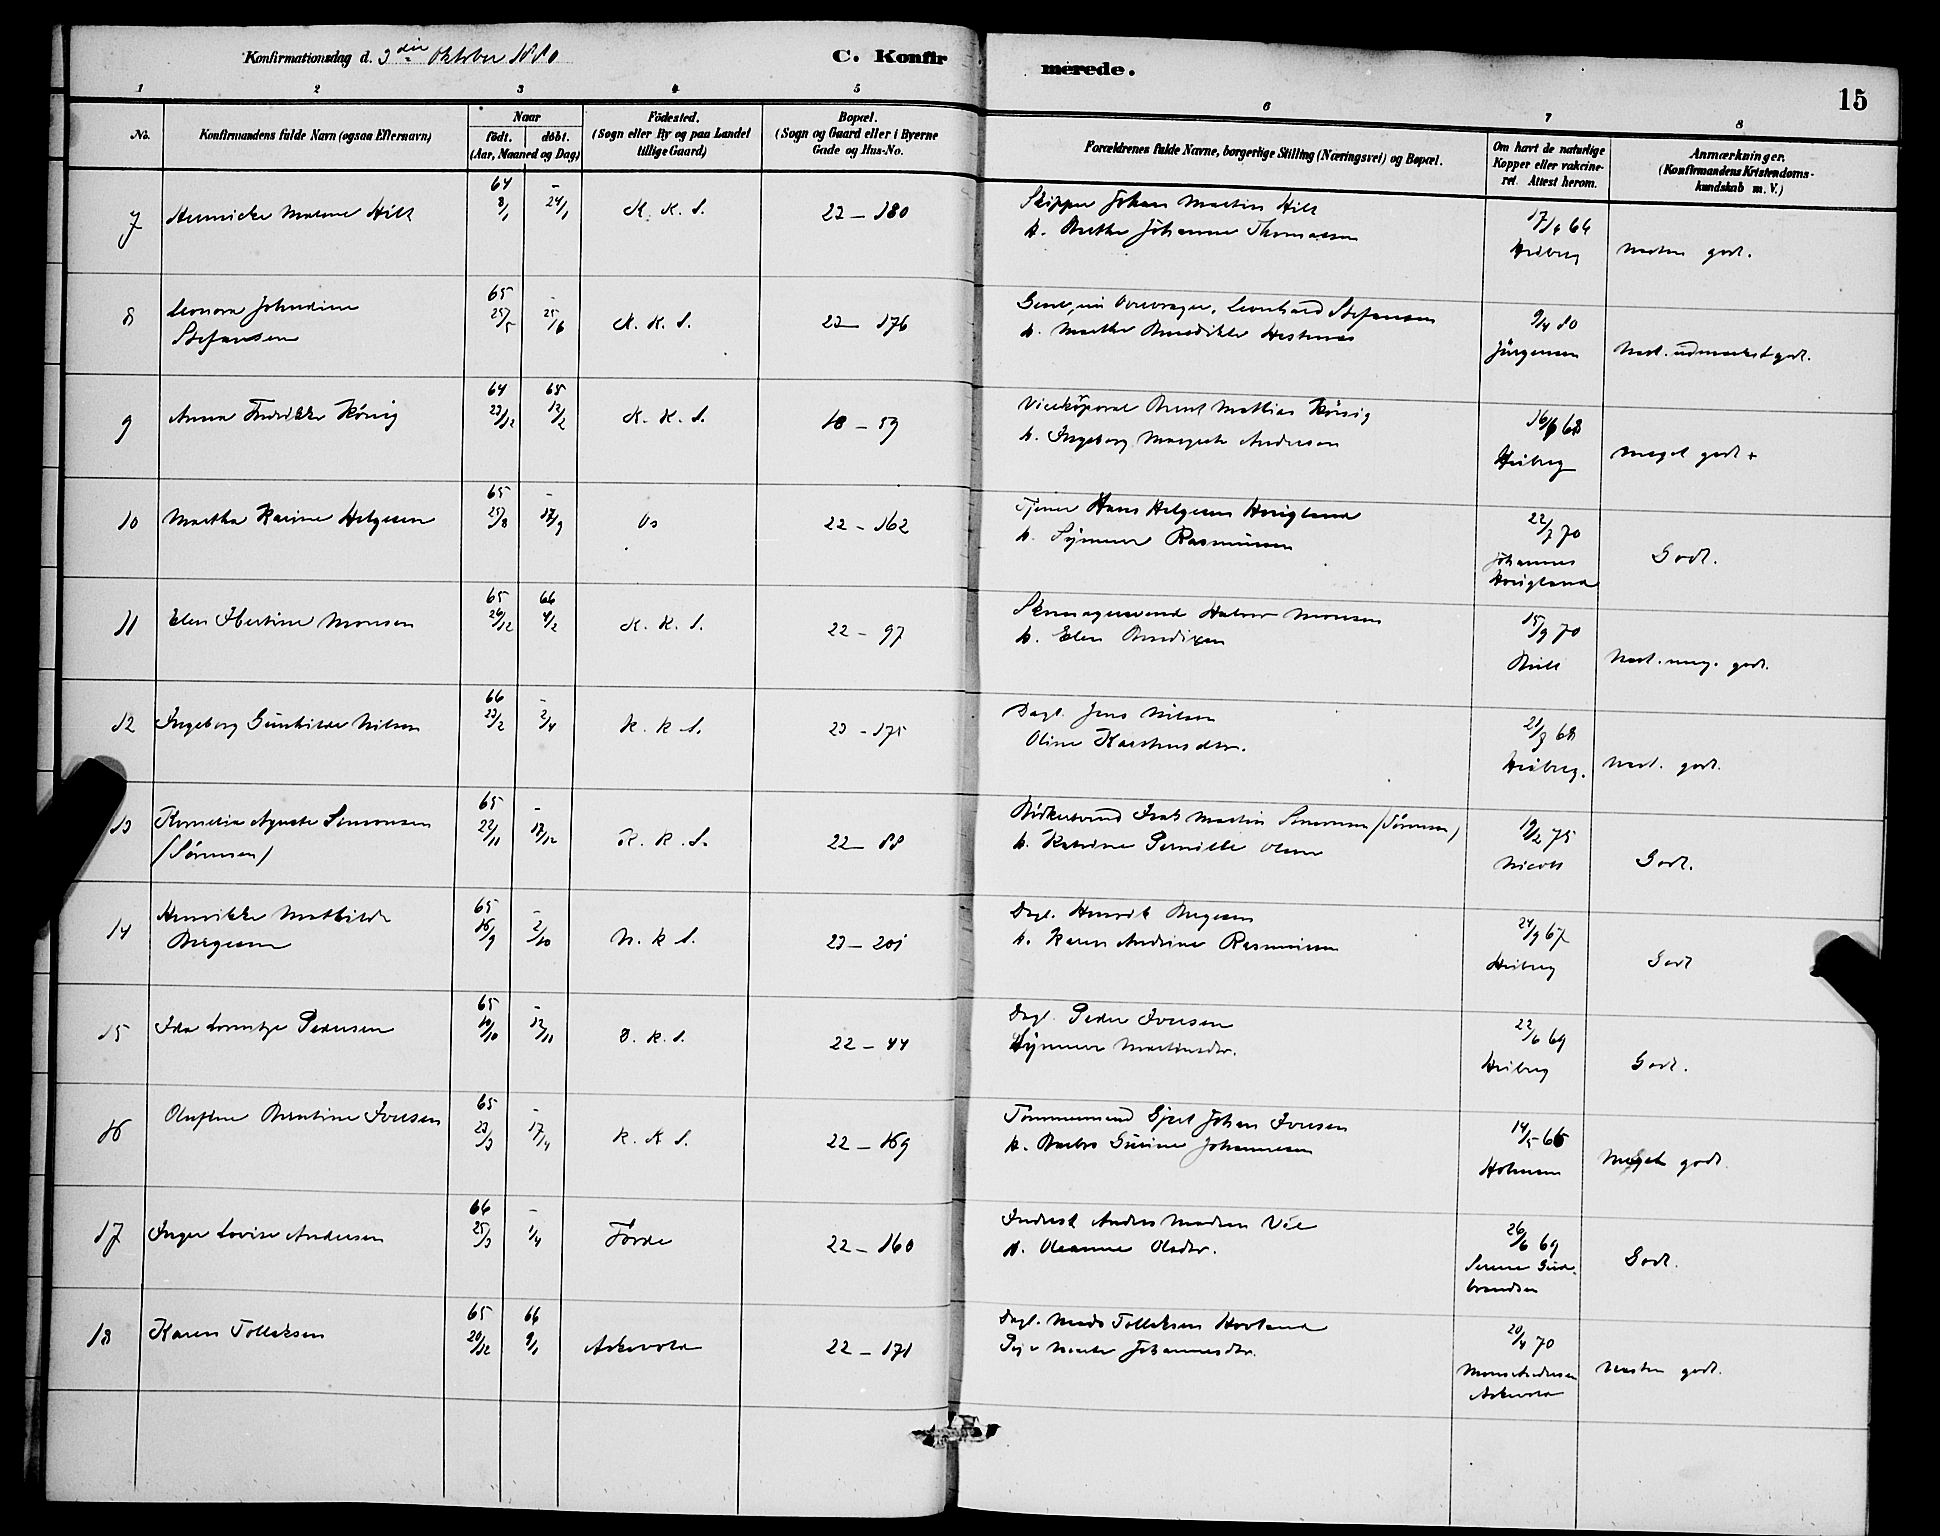 Konfirmationsdag d. 3die Oktober 1880
C. Konfirmerede.
15
1 2 3 4 5 6 7 8
No.
Konfirmandens fulde Navn (ogsaa Efternavn)
Naar
födt. döbt.
(Aar, Maaned og Dag)
Födested.
(Sogn eller By og paa Landet
tillige Gaard)
Bopæl.
(Sogn og Gaard eller i Byerne
Gade og Hus-No.
Forældrenes fulde Navne, borgerlige Stilling (Næringsvei) og Bopæl.
Om havt de naturlige
Kopper eller vakcine-
ret. Attest herom.
Anmærkninger.
(Konfirmandens Kristendoms-
kundskab m. V.)
7 Hilt
64 -
8/1 24/1
K. K. S.
23 - 180
Skipper Johan Martin Hilt
h. Johanne Thomassen
17/6 66
Heiberg
næsten godt.
8 Leonora
Stefansen
65 -
25/5 25/6
K. K. S.
23 - 176
Leonhard Stefansen
h. Marthe Benedikte
9/4 80
Jürgensen
Næst. udmærket godt.
9 Anna Fredrikke König
64 65
23/12 12/2
K. K. S.
18 - 59
Mathias König
h. Ingeborg Margrete Andersen
16/6 68
Heiberg
Meget godt +
10 Martha Karine Helgesen
65 -
25/8 17/9
Os
22 - 162
Hans Helgesen Haugland
h. Synneve Rasmussen
22/7 70
Johannes
Haugland
Godt.
11 Elen Ibertine Monsen
65 66
26/12 4/2
K. K. S.
22 - 97
Halvor Monsen
h. Elen Bendixen
15/9 70
Næst. meg. godt.
12 Ingeborg Gunhilde Nilsen
66 -
23/2 2/4
K. K. S.
23 - 175
Dagl. Jens Nilsen
Oline Karstensdtr.
21/8 68
Heiberg.
Næst. godt.
13 Kornelia Agnete Simonsen
/Sörensen/
65 -
22/11 17/12
K. K. S.
22 - 88
Bödkersvend Isak Martin Simonsen /Sörensen/
h. Katrine Pernille Olsen
75
Godt.
14 Henrikke Mathilde
Birgesen
65 -
16/9 2/10
N. K. S.
23 - 201
Dagl. Henrik Birgesen
h. Karen Andrine Rasmussen
24/9 67
Heiberg
Godt
15 Ida Pedersen
65 -
10/10 12/11
D. K. S.
22 - 44
Dagl. Peder Iversen
Synneve Martinsdtr.
22/6 69
Heiberg
Godt.
16 Olufine Berntine Iversen
65 -
23/3 17/4
K. K. S.
22 - 169
Tömmermand Gjert Johan Iversen
h. Gurine Johannesen
14/5 66
Holmsen
Meget godt.
17 Inger Lovise Andersen
66 -
25/3 1/4
Förde
22 - 160
Inderst Anders Madsen Vie
h. Oleanne Olsdtr.
26/6 69
Serene Gud-
brandsen
Godt.
18 Karen Tollaksen
65 66
20/12 9/1
Askevold
22 - 171
Dagl. Mads Tollaksen Hovland
Pige Marte Johannesdtr.
20/4 70
Mons Andersen
Askevold
Næsten godt.